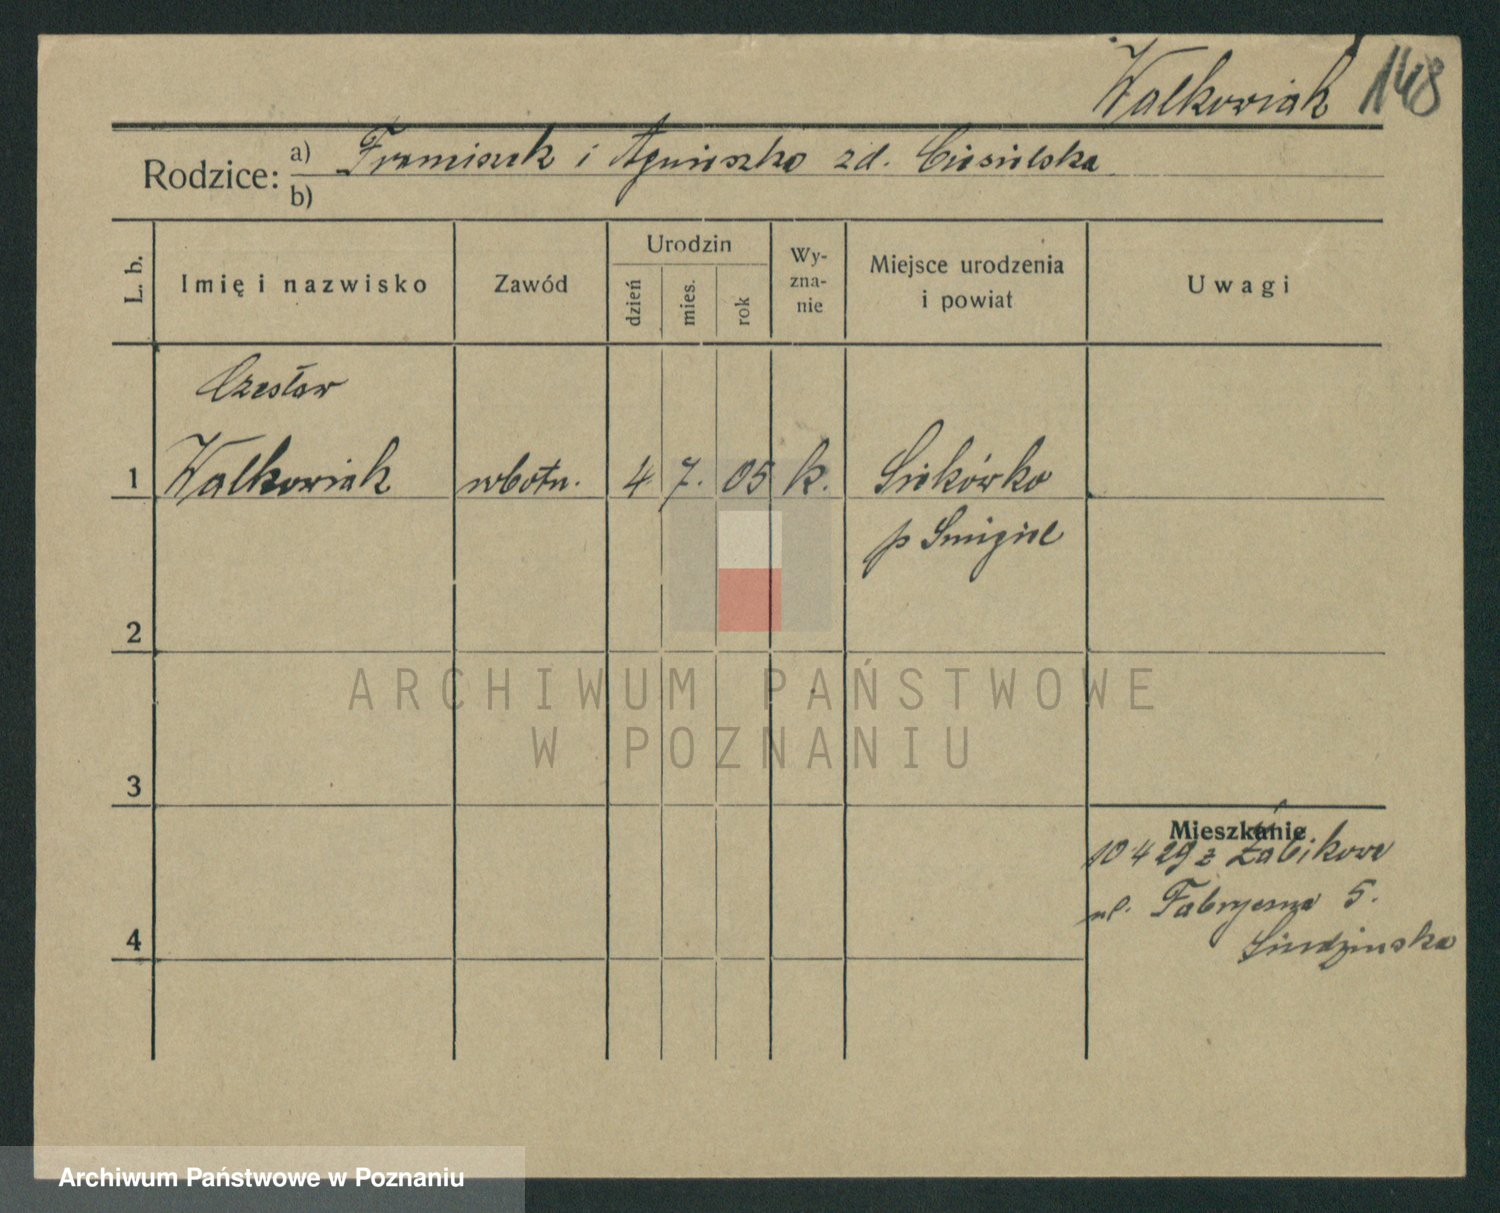 Walkowiak 148
Rodzice: a) Franciszek i Agnieszka zd. Ciesielska
b)
L. b.
Imię i nazwisko
Zawód
Urodzin
dzień
mies.
rok
Wy-
zna-
nie
Miejsce urodzenia
i powiat
Uwagi
Czesław
1 Walkowiak robotn. 4. 7. 05 k. Siekówko
p Smigiel
2
ARCHIWUM PAŃSTWOWE
W POZNANIU
3
Mieszkanie
10 4 29 z Żabikowo
ul. Fabryczna 5.
4
Archiwum Państwowe w Poznaniu